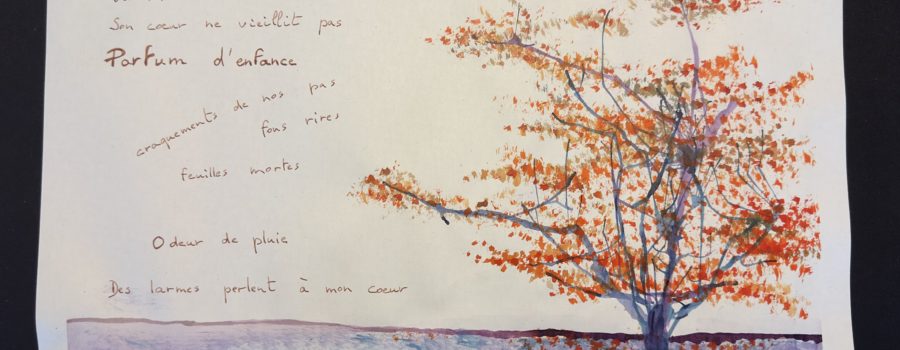 Son cœur ne vieillit pas
Parfum d'enfance
craquements de nos pas
fous rires
feuilles mortes
Odeur de pluie
Des larmes perlent à mon coeur